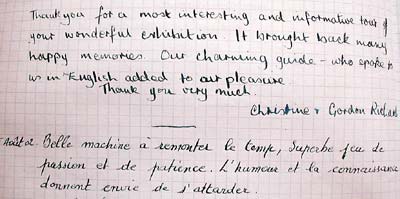 Thank you for a most interesting and informative tour of
your wonderful exhibition. It brought back many
happy memories. Our charming guide - who spoke to
us in English added to our pleasure.
Thank you very much.
Christine + Gordon
Août 02. Belle machine à remonter le temps, Superbe jeu de
passion et de patience. L'humour et la connaissance
donnent envie de s'attarder.